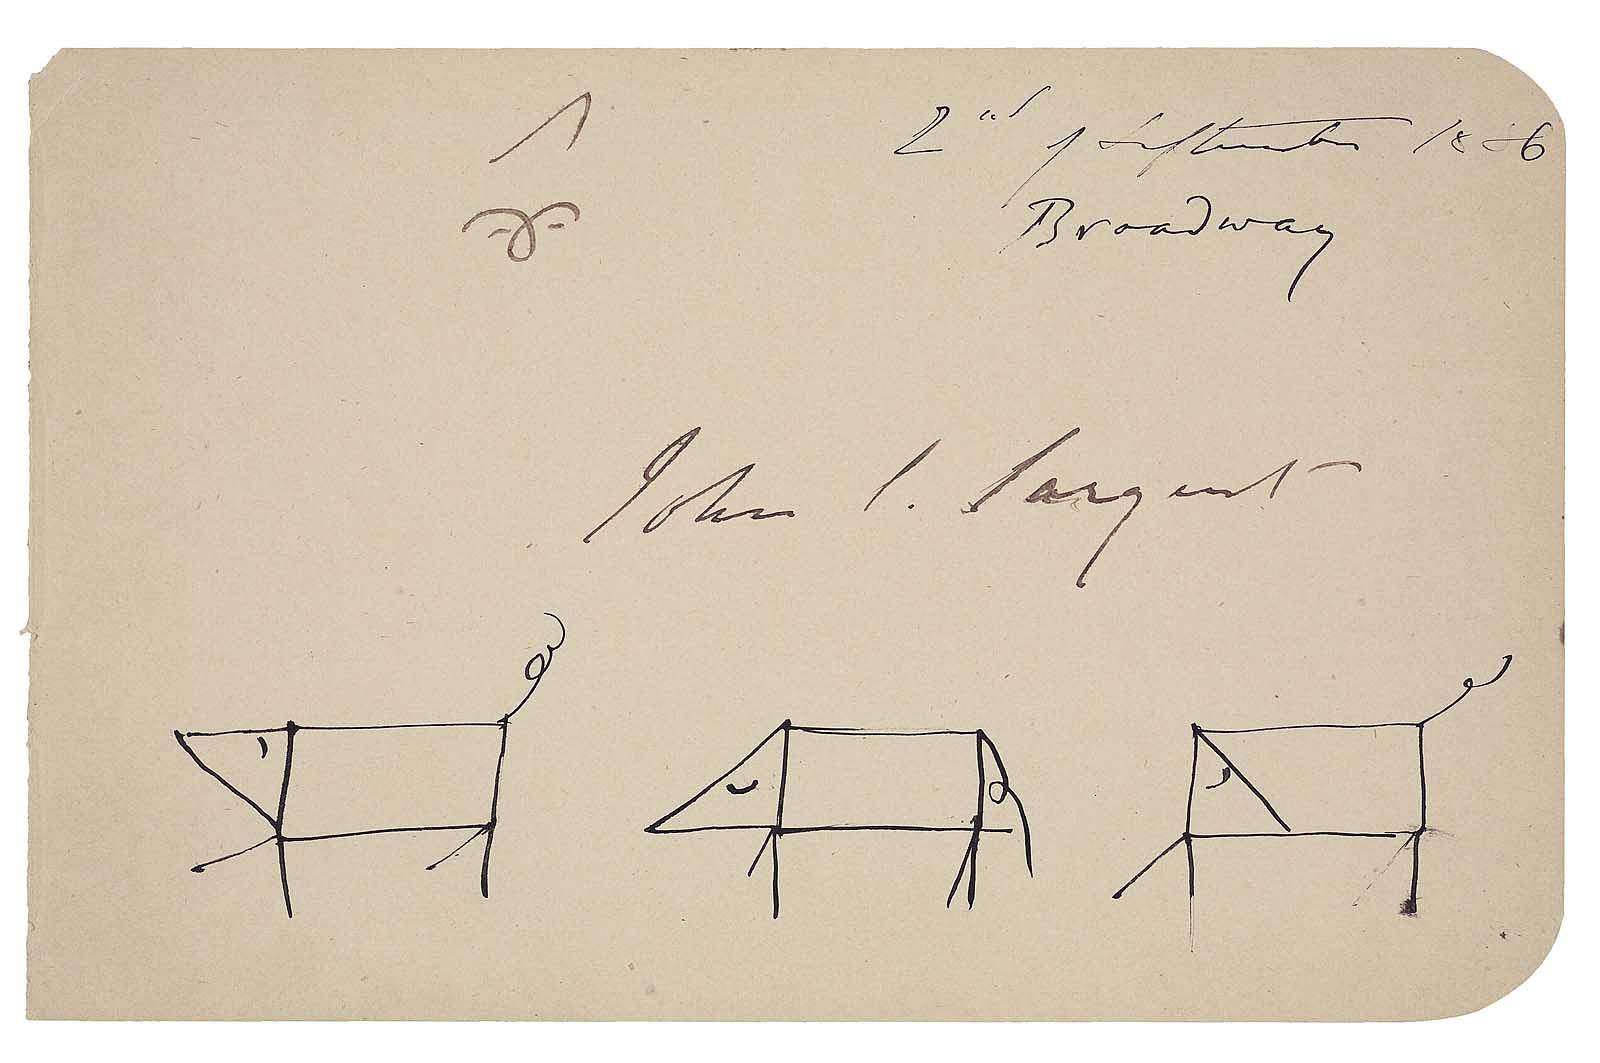 2nd of September 1886
Broadway
John S. Sargent